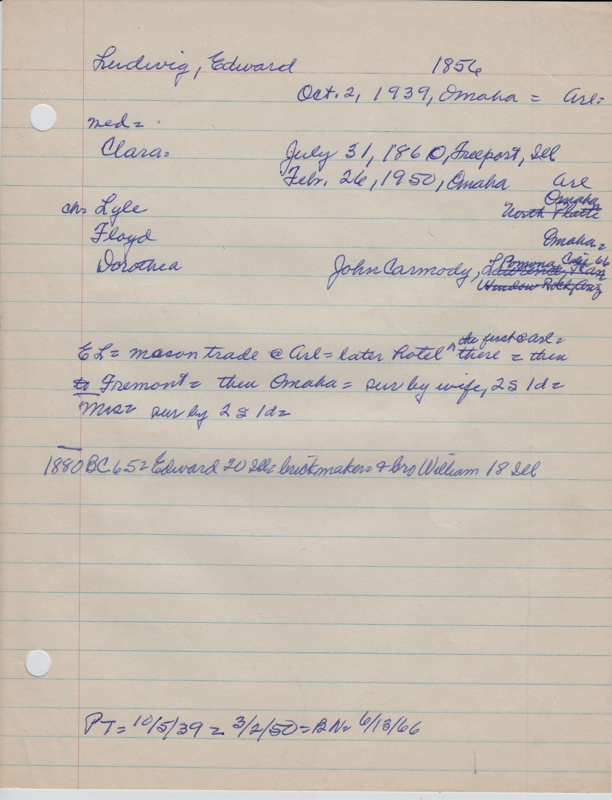 Ludwig, Edward 1856
Oct. 2, 1939, Omaha = Arl=
med=
Clara= July 31, 1860, Freeport, Ill
Feb. 26, 1950, Omaha Arl
Omaha
ch= Lyle North Platte
Floyd Omaha=
Dorothea John Carmody, Lawrence, Kan Pomona, Calif 66
Window Rock, Ariz
the first @ Arl=
EL= mason trade @ Arl= later hotel ^ there = then
to Fremont= then Omaha= sur by wife, 2s 1d=
Mrs= sur by 2s 1d=
1880 BC 65= Edward 20 Ill= brickmaker= & bro William 18 Ill
PT= 10/5/39 = 3/2/50= BN= 6/13/66